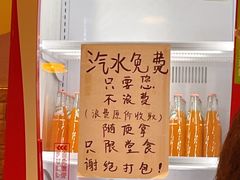 汽水免费
只要您
不浪费
(浪费原价收取)
随便拿
只限堂食
谢绝打包!